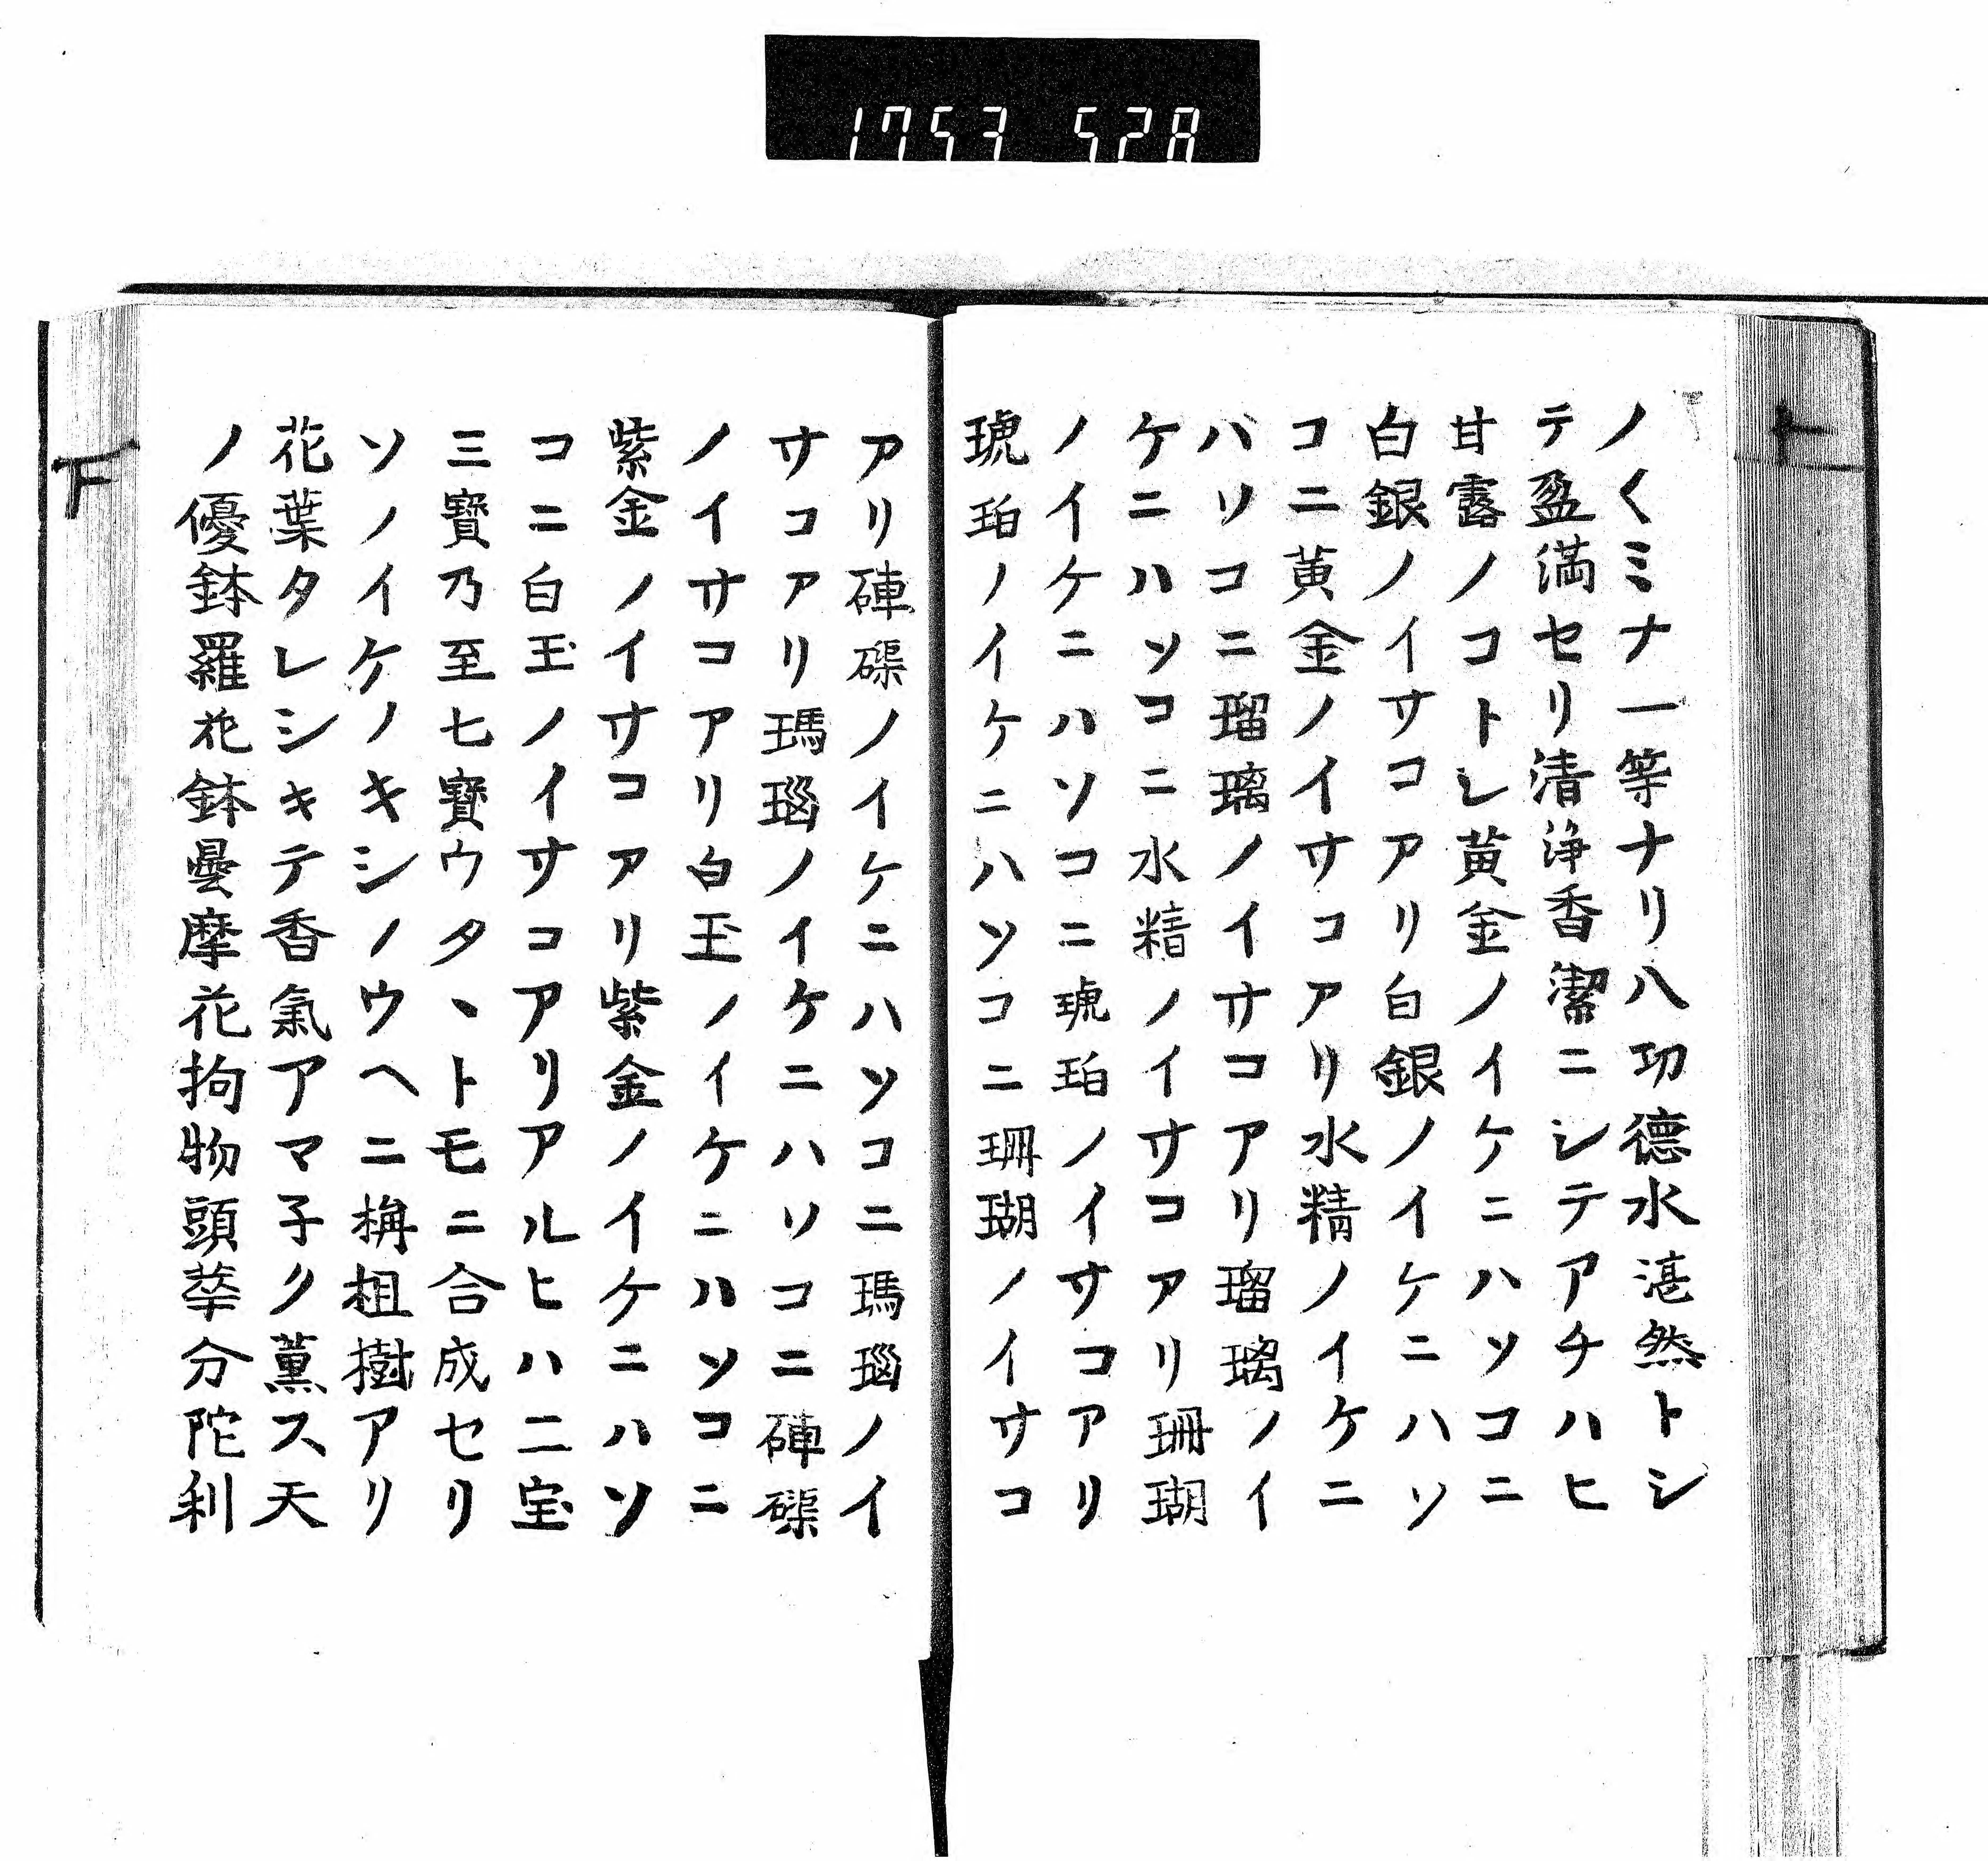 1753 528
ノ〱ミナ一等ナリ八功德水湛然トシ
テ盈満セリ清浄香潔ニシテアチハヒ
甘露ノコトシ黄金ノイケニハソコニ
白銀ノイサコアリ白銀ノイケニハソ
コニ黄金ノイサコアリ水精ノイケニ
バソコニ瑠璃ノイサコアリ瑠璃ノイ
ケニハソコニ水精ノイサコアリ珊瑚
ノイケニハソコニ琥珀ノイサコアリ
琥珀ノイケニハソコニ珊瑚ノイサコ
アリ硨磲ノイケニハソコニ瑪瑙ノイ
サコアリ瑪瑙ノイケニハソコニ硨磲
ノイサコアリ白玉ノイケニハソコニ
紫金ノイサコアリ紫金ノイケニハソ
コニ白玉ノイサコアリアルヒハ二宝
三寳乃至七寳ウタヽトモニ合成セリ
ソノイケノキシノウヘニ栴檀樹アリ
花葉タレシキテ香氣アマ子ク薫ス天
ノ優鉢羅花鉢曇摩花拘物頭華分陀利